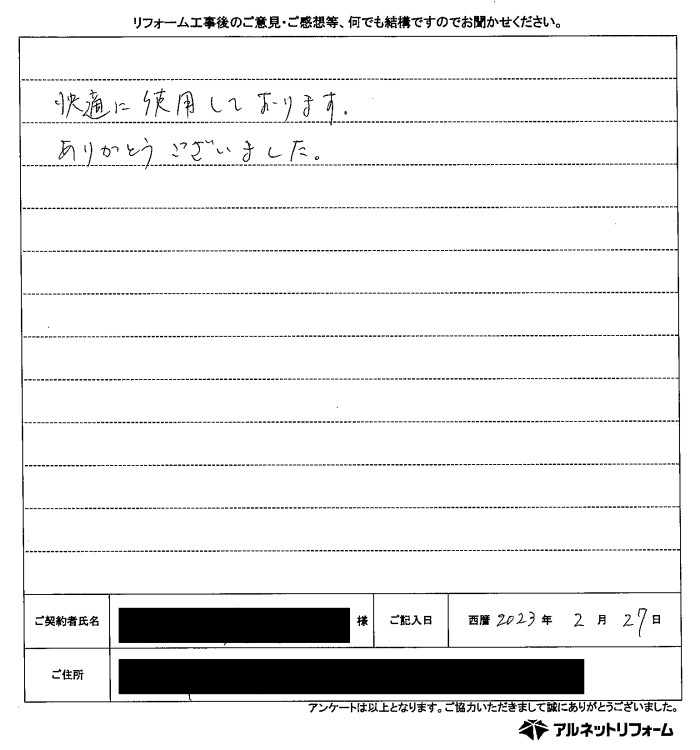 リフォーム工事後のご意見・ご感想等、何でも結構ですのでお聞かせください。
快適に使用しております.
ありがとうございました。
ご契約者氏名 様 ご記入日 西暦 2023 年 2 月 27 日
ご住所
アンケートは以上となります。ご協力いただきまして誠にありがとうございました。
アルネットリフォーム